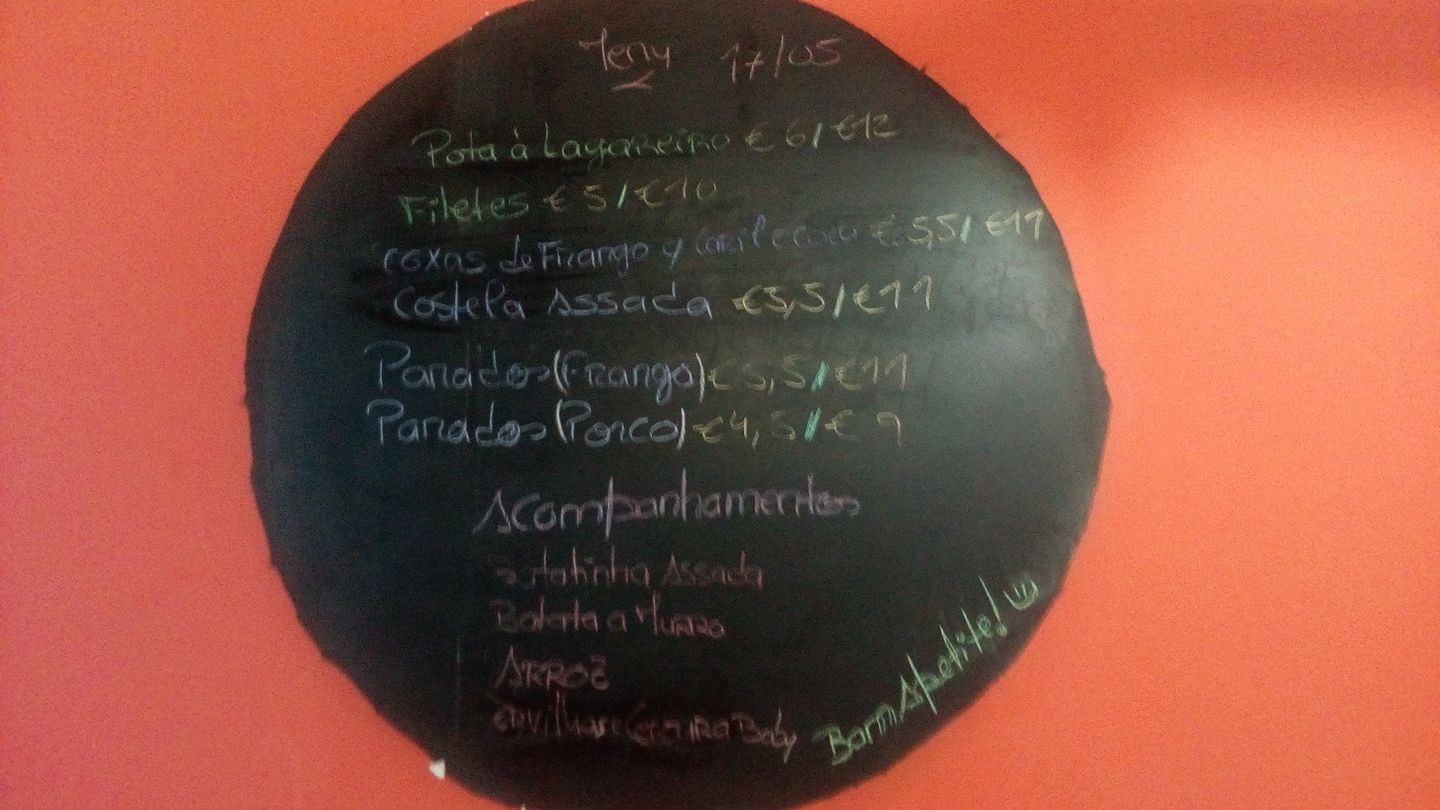 Menu 17/05
Pota à Lagareiro € 6/€12
Filetes € 5/€10
coxas de Frango y Caril e coco €5,5/€11
Costela Assada €5,5/€11
Panados (Frango) €5,5/€11
Panados (Porco) €4,5/€ 9
Acompanhamentos
Batatinha Assada
Batata a Murro
ARROZ
ervilha e Cenoura Baby
Bom Apetite!